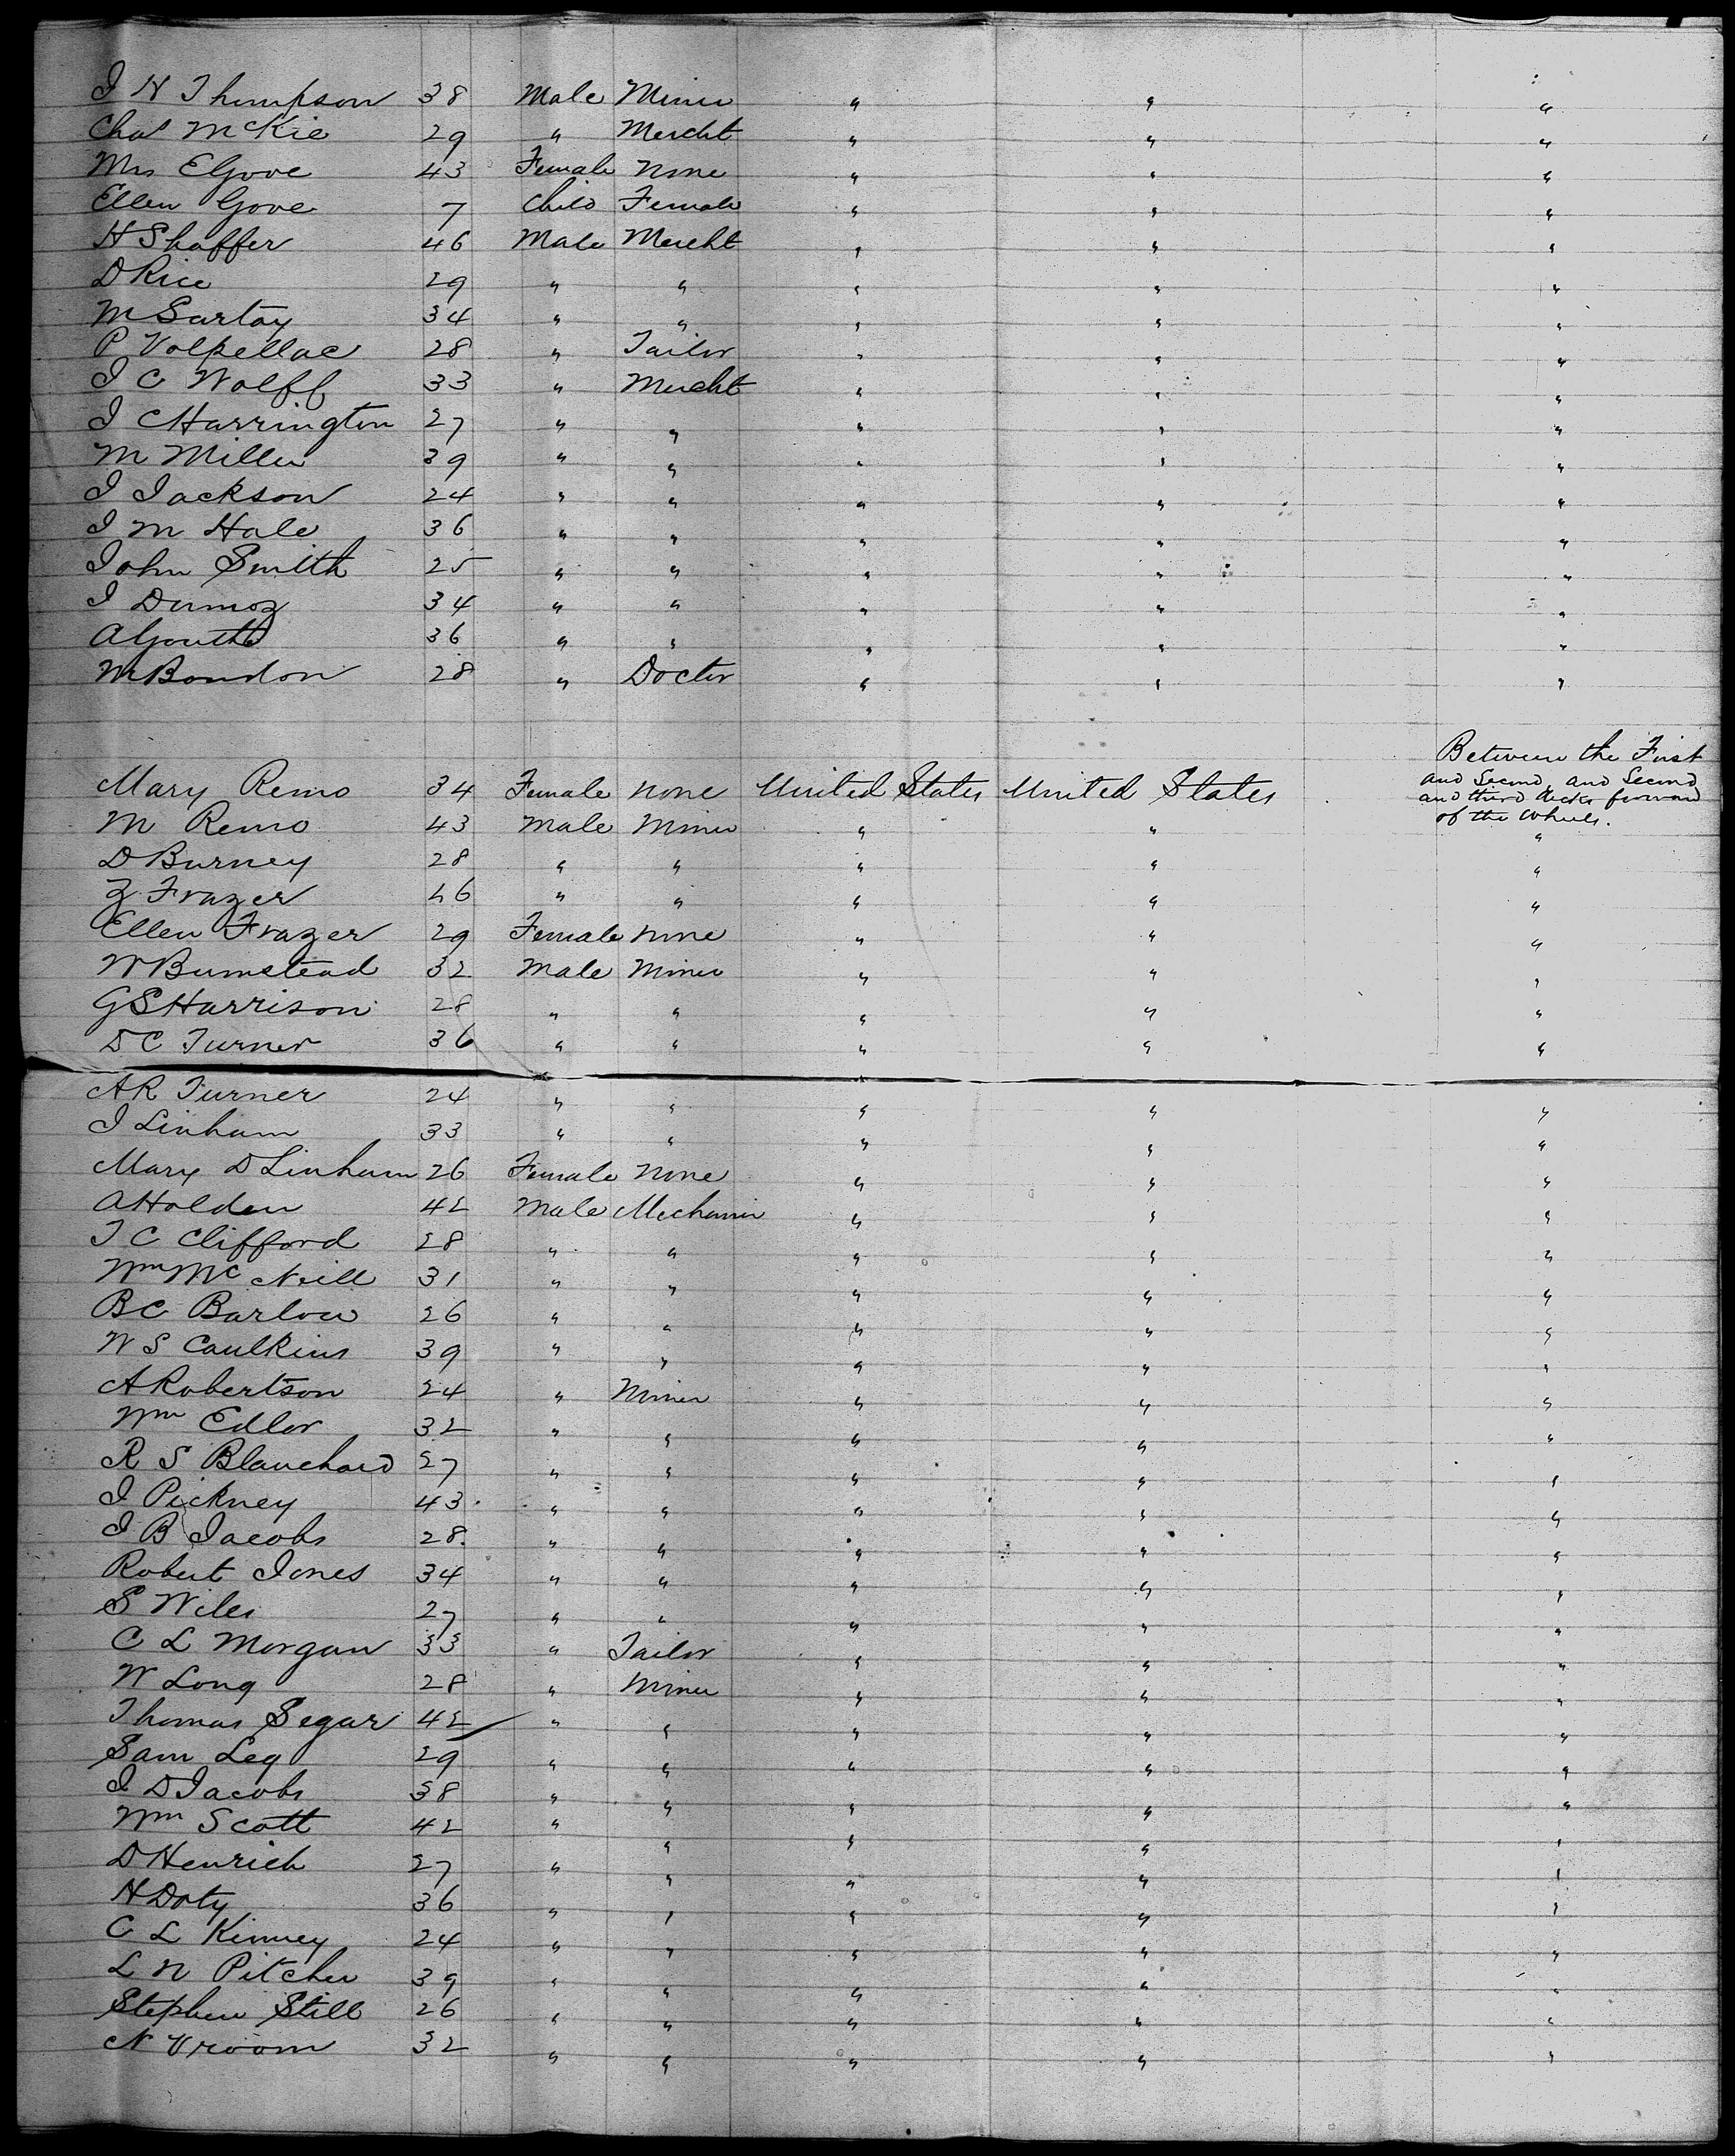 I H Thompson 38 Male Miner " " "
Chas McKie 29 " Mercht " " "
Mrs E Gove 43 Female None " " "
Ellen Gove 7 Child Female " " "
H Shaffer 46 Male Mercht " " "
D Rice 29 " " " " "
M Sartay 34 " " " " "
P Volpellac 28 " Tailor " " "
I C Wolff 33 " Mercht " " "
I C Harrington 27 " " " " "
M Miller 39 " " " " "
I Jackson 24 " " " " "
I M Hale 36 " " " " "
John Smith 25 " " " " "
I Dumoz 34 " " " " "
A 36 " " " " "
M Bondon 28 " Doctor " " "
Between the First
and Second, and Second
and third decks forward
of the Wheels.
Mary Remo 34 Female None United States United States
M Remo 43 Male Miner " " "
D Burney 28 " " " " "
Z Frazer 46 " " " " "
Ellen Frazer 29 Female None " " "
W Bumstead 32 Male Miner " " "
G S Harrison 28 " " " " "
D C Turner 36 " " " " "
A R Turner 24 " " " " "
I Linham 33 " " " " "
Mary D Linham 26 Female None " " "
A Holden 42 Male Mechanic " " "
T C Clifford 28 " " " " "
Wm McNeill 31 " " " " "
B C Barlow 26 " " " " "
W S Caulkins 39 " " " " "
A Robertson 24 " Miner " " "
Wm Edlor 32 " " " " "
R S Blanchard 27 " " " " "
I Pickney 43 " " " " "
I B Jacobs 28 " " " " "
Robert Jones 34 " " " " "
S Wiles 27 " " " " "
C L Morgan 33 " Tailor " " "
W Long 28 " Miner " " "
Thomas Segar 42 " " " " "
Sam Leg 29 " " " " "
I D Jacobs 38 " " " " "
Wm Scott 42 " " " " "
D Henrich 27 " " " " "
H Doty 36 " " " " "
C L Kinney 24 " " " " "
L N Pitcher 39 " " " " "
Stephen Still 26 " " " " "
N Vroom 32 " " " " "